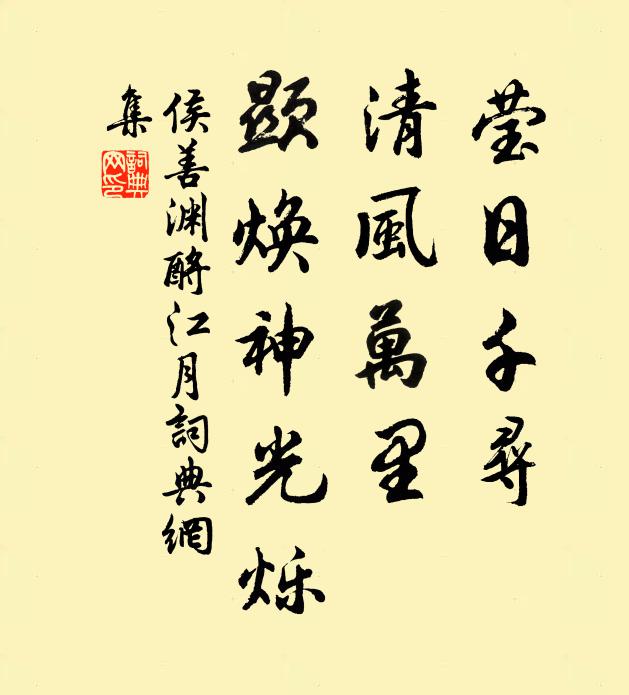 莹日千尋
清風萬里
顯焕神光烁
侯善渊酹江月詞典網
集
詞典
网印